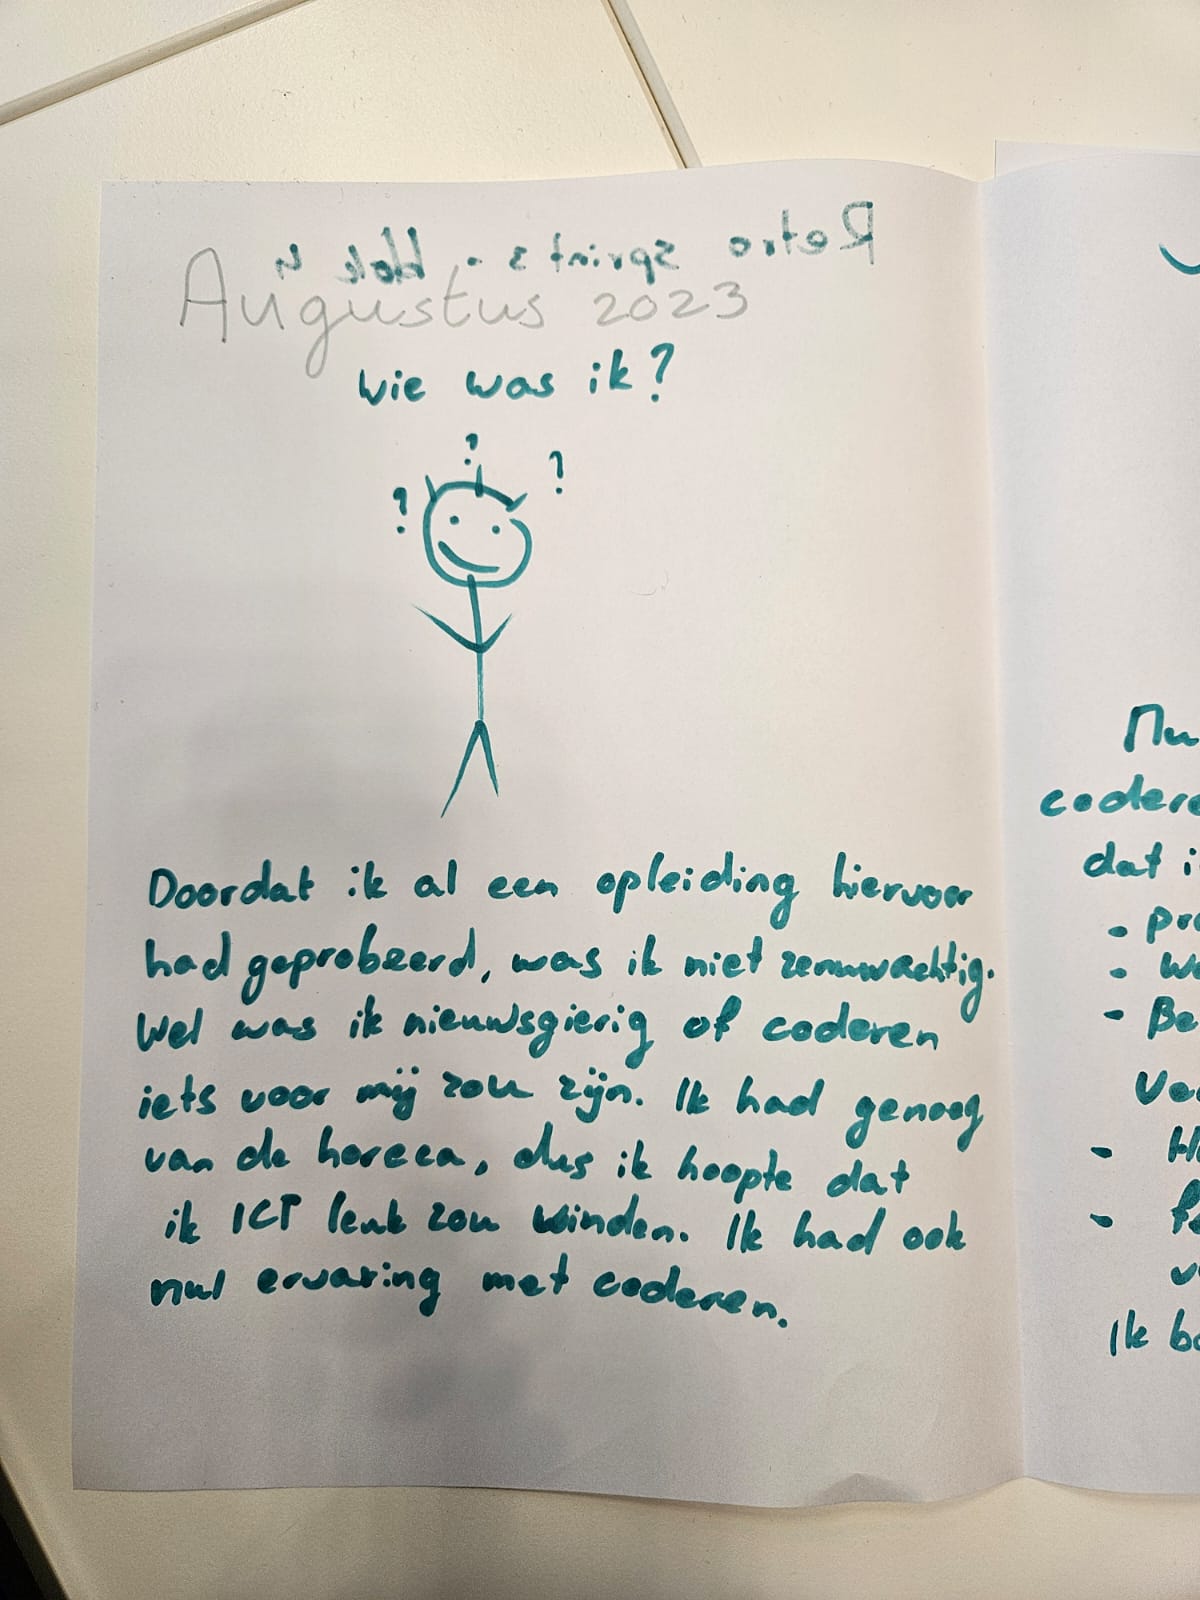 Retro sprint 3 - blok 4
Augustus 2023
Wie was ik?
? ? ?
Doordat ik al een opleiding hiervoor
had geprobeerd, was ik niet zenuwachtig.
Wel was ik nieuwsgierig of coderen
iets voor mij zou zijn. Ik had genoeg
van de horeca, dus ik hoopte dat
ik ICT leuk zou winden. Ik had ook
nul ervaring met coderen.
Nu
codere
dat i
- pro
- we
- Be
Ve
- H
-
v
Ik bo